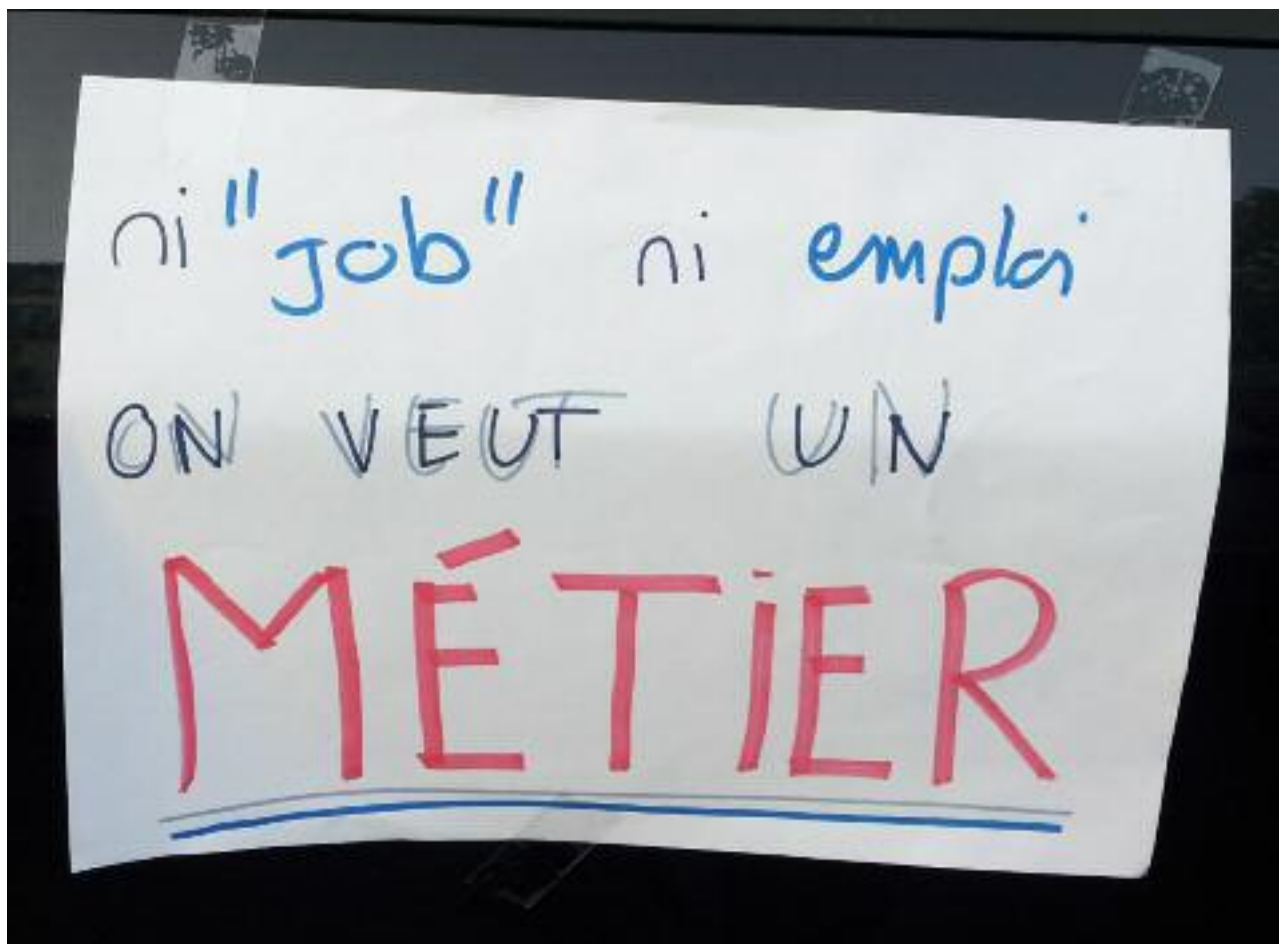 ni "job" ni emploi
ON VEUT UN
MÉTiER